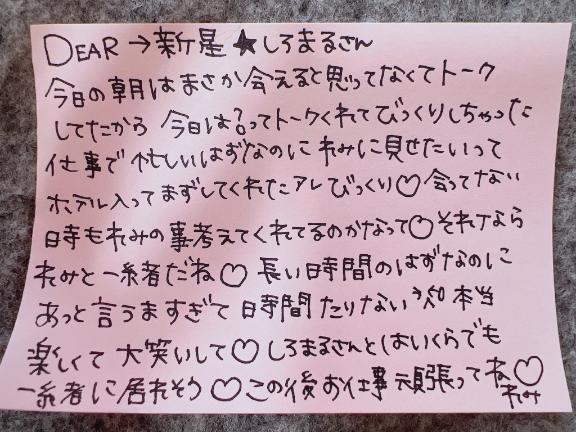 DEAR→新星★しろまるさん
今日の朝はまさか会えると思ってなくてトーク
してたから 今日は?ってトークくれてびっくりしちゃった
仕事で忙しいはずなのにれみに見せたいって
ホテル入ってまずしてくれたアレびっくり♡会ってない
時もれみの事考えてくれてるのかなって♡それなら
れみと一緒だね♡ 長い時間のはずなのに
あっと言うますぎて時間たりない 本当
楽しくて大笑いして♡しろまるさんとはいくらでも
一緒に居れそう♡この後お仕事頑張ってね♡
れみ